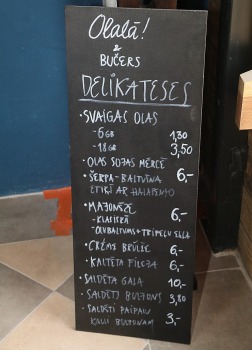 Olalā!
&
BUČERS
DELIKATESES
• SVAIGAS OLAS
- 6 GB 1,30
- 18 GB 3,50
• OLAS SOJAS MĒRCĒ
• ŠERPA - BALTVĪNA 6,-
ETIĶĪ AR HALAPENJO
• MAJONĒZE 6,-
- KLASISKĀ
- OLVBALTUMS + TRIPELU SULA
• CRÈME BRÛLÉE 6,-
• KALTĒTA FILEJA 6,-
• SALDĒTA GAĻA 10,-
• SALDĒTS BULJONS 3,80
• SALDĒTI PAIPALU
KAULI BULJONAM 3,-